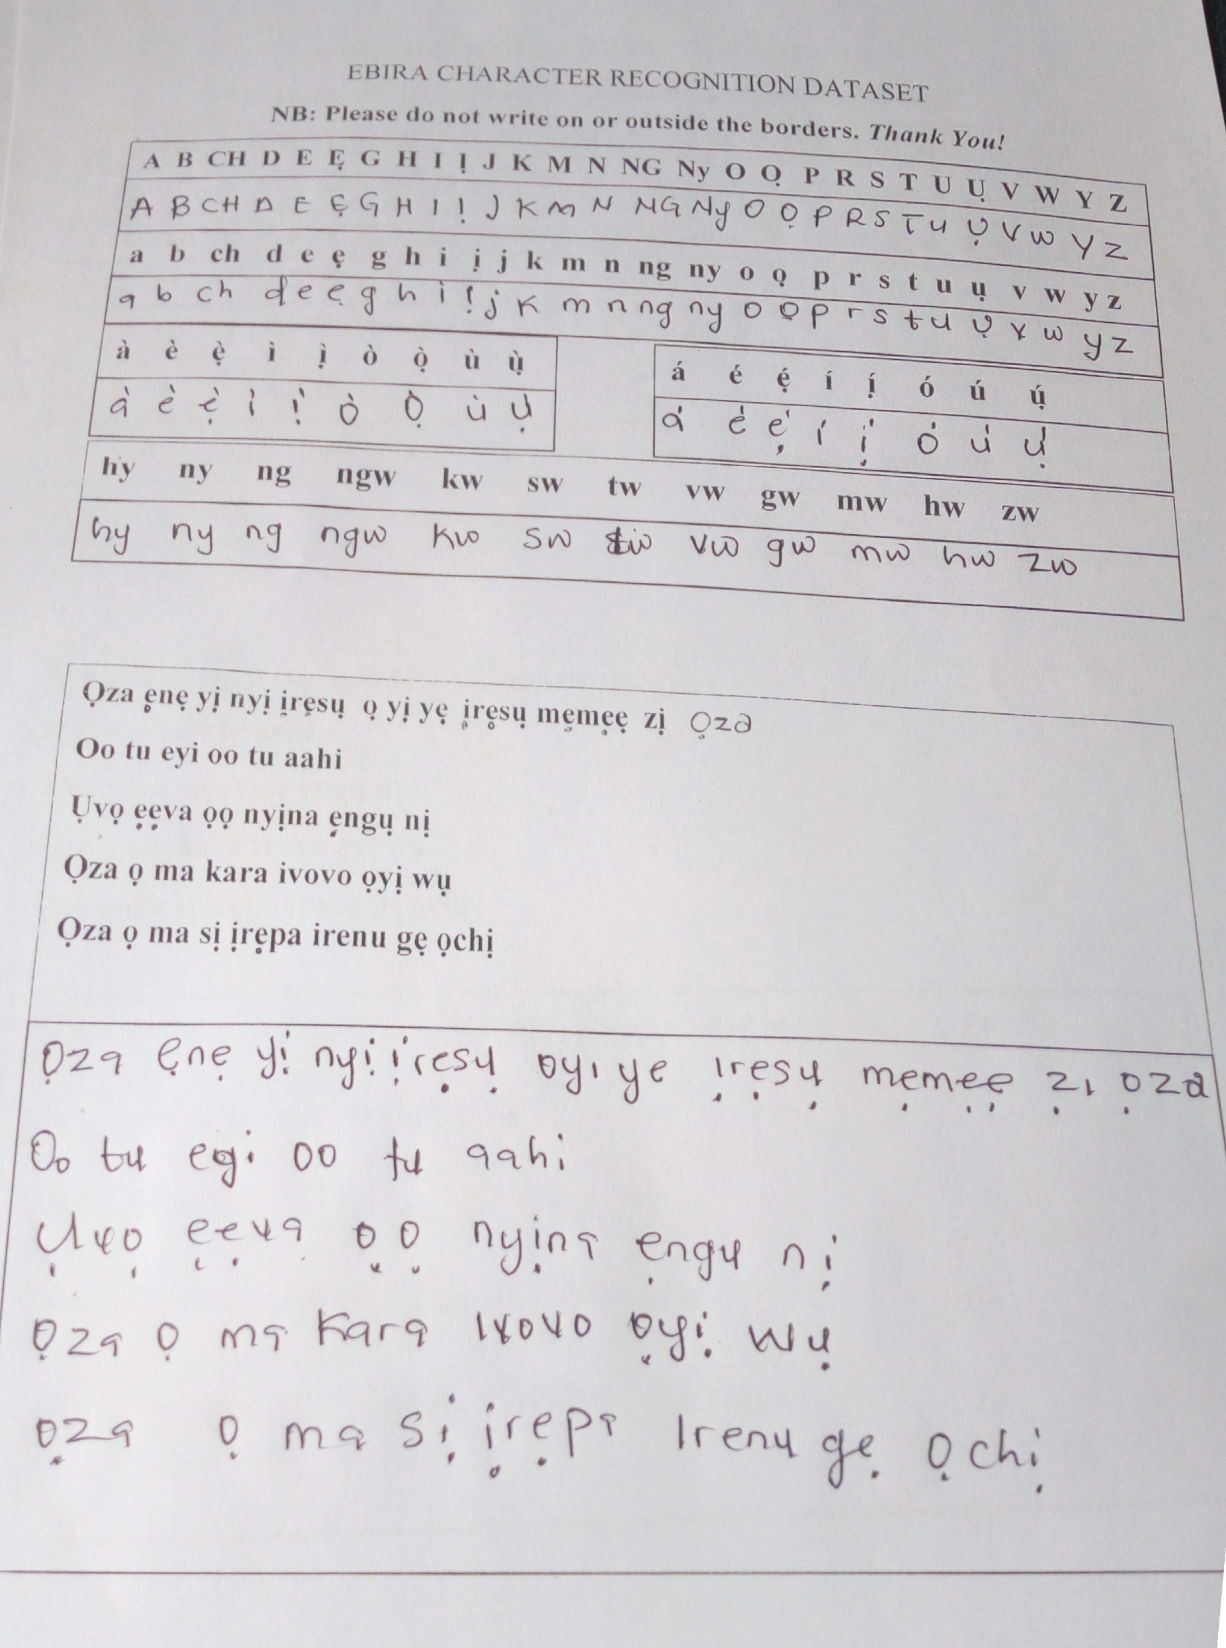 EBIRA CHARACTER RECOGNITION DATASET
NB: Please do not write on or outside the borders. Thank You!
A B CH D E Ẹ G H I Ị J K M N NG Ny O Ọ P R S T U Ụ V W Y Z
A B CH D E Ẹ G H I Ị J K M N NG Ny O Ọ P R S T U Ụ V W Y Z
a b ch d e ẹ g h i ị j k m n ng ny o ọ p r s t u ụ v w y z
a b ch d e ẹ g h i ị j k m n ng ny o ọ p r s t u ụ v w y z
à è ẹ̀ ì ị̀ ò ọ̀ ù ụ̀
à è ẹ̀ ì ị̀ ò ọ̀ ù ụ̀
á é ẹ́ í ị́ ó ú ụ́
á é ẹ́ í ị́ ó ú ụ́
hy ny ng ngw kw sw tw vw gw mw hw zw
hy ny ng ngw kw sw tw vw gw mw hw zw
Ọza ẹnẹ yị nyị ịrẹsụ ọ yị yẹ ịrẹsụ mẹmẹẹ zị ọza
Oo tu eyi oo tu aahi
Ụvọ ẹẹva ọọ nyịna ẹngụ nị
Ọza ọ ma kara ivovo ọyị wụ
Ọza ọ ma sị ịrẹpa irenu gẹ ọchị
Ọza ẹnẹ yị nyị ịrẹsụ oyi ye ịrẹsụ mẹmẹẹ ẓi ọza
Oo tu eyi oo tu aahi
Ụvọ ẹẹva ọọ nyịna ẹngu nị
Ọza ọ ma Kara Ivovo ọyị wụ
ọza ọ ma sị ịrẹpa Irenu gẹ Ọchị